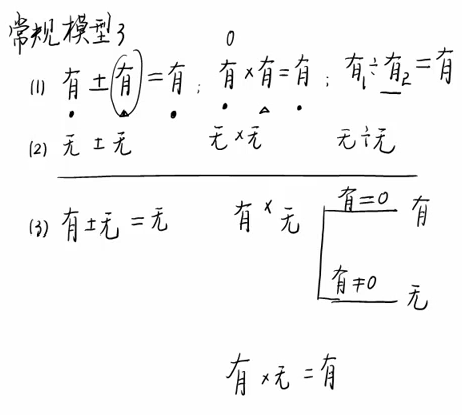 常规模型3
0
(1) 有 ± 有 = 有 ; 有 × 有 = 有 ; 有₁ ÷ 有₂ = 有
(2) 无 ± 无 无 × 无 无 ÷ 无
(3) 有 ± 无 = 无 有 × 无 有=0 有
有≠0 无
有 × 无 = 有